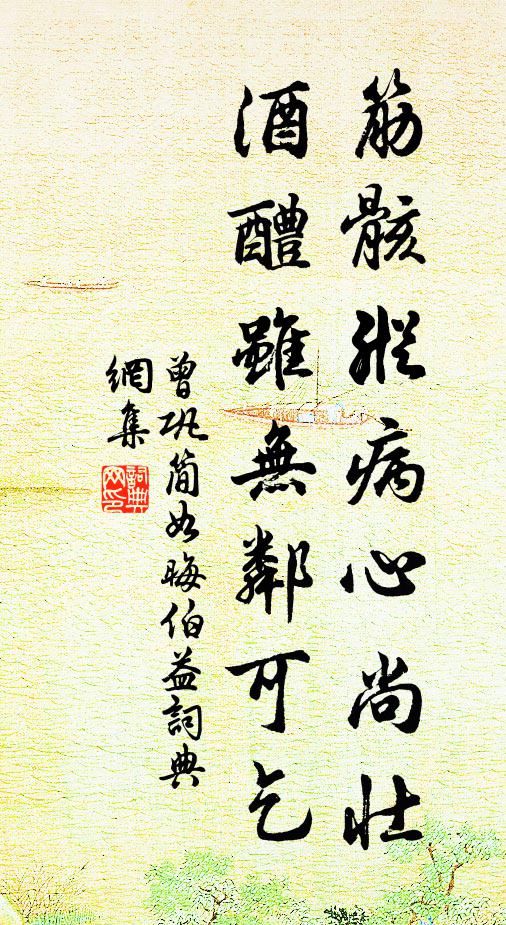 筋骸縱病心尚壯
酒醴雖無鄰可乞
曾巩簡如晦伯益詞典
網集
詞典
网印